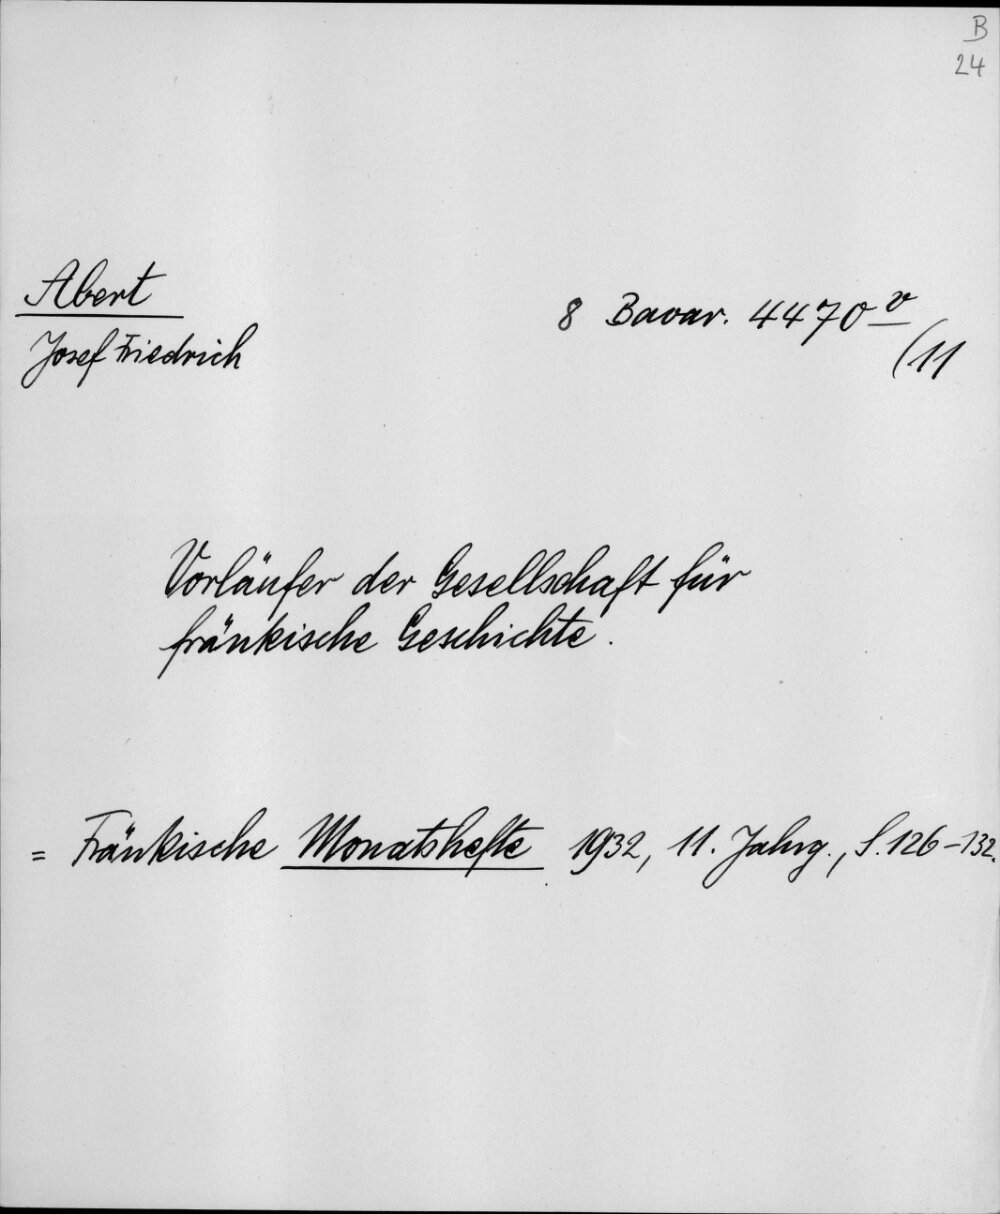 B
24
Abert
8 Bavar. 4470 v
Josef Friedrich
(11
Vorläufer der Gesellschaft für
fränkische Geschichte.
= Fränkische Monatshefte 1932, 11. Jahrg., S. 126-132.